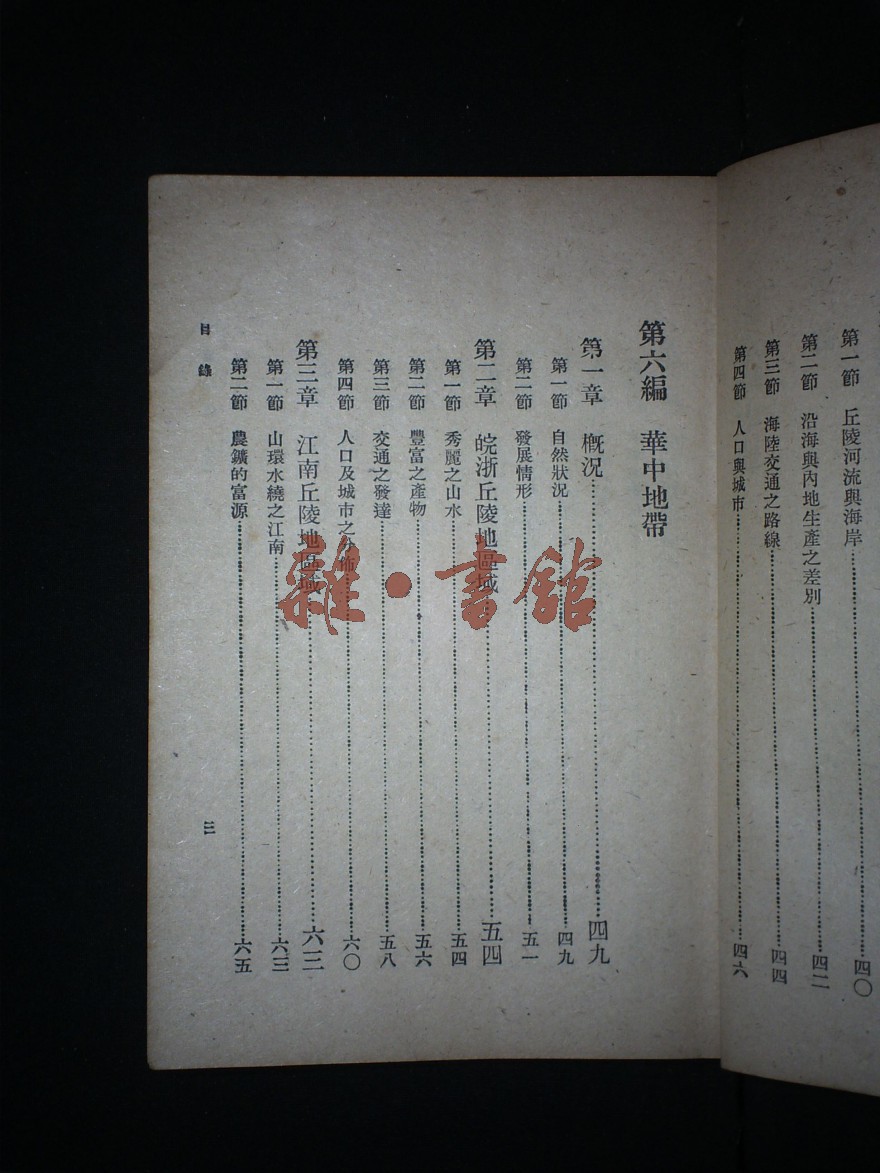 第一節 丘陵河流與海岸 四〇
第二節 沿海與內地生產之差別 四二
第三節 海陸交通之路線 四四
第四節 人口與城市 四六
第六編 華中地帶
第一章 概況 四九
第一節 自然狀況 四九
第二節 發展情形 五一
第二章 皖浙丘陵地區域 五四
第一節 秀麗之山水 五四
第二節 豐富之產物 五六
第三節 交通之發達 五八
第四節 人口及城市之分佈 六〇
第三章 江南丘陵地區域 六三
第一節 山環水繞之江南 六三
第二節 農鑛的富源 六五
目錄
三
雜·書館